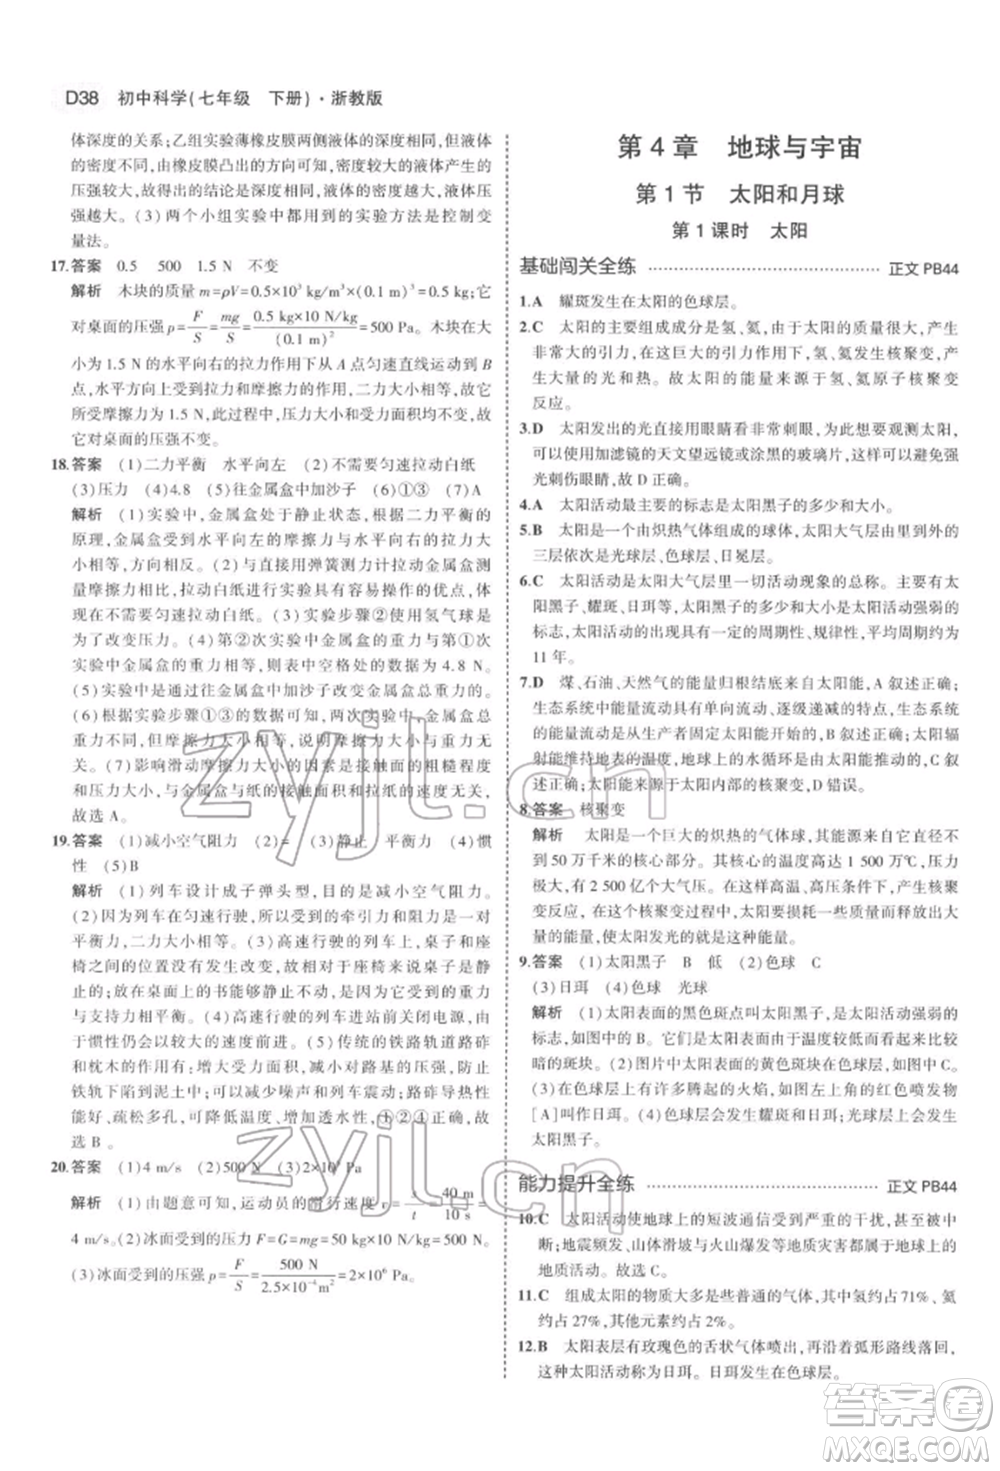 D38 初中科学(七年级 下册)·浙教版
体深度的关系;乙组实验薄橡皮膜两侧液体的深度相同,但由
于由橡皮膜凸出的方向可知,密度较大的液体产生的
压强较大,故得出的结论是深度相同,液体的密度越大,液体压
强越大。(3)两个小组实验中都用到的实验方法是控制变
量法。
17.答案 0.5 500 1.5 N 不变
解析 木块的质量 m=ρV=0.5×10³ kg/m³×(0.1 m)³=0.5 kg;它
对桌面的压强 p=F/S=mg/S=0.5 kg×10 N/kg/(0.1 m)²=500 Pa。木块在大
小为 1.5 N 的水平向右的拉力作用下从 A 点匀速直线运动到 B
点,水平方向上受到拉力和摩擦力的作用,二力大小相等,故它
所受摩擦力为 1.5 N,此过程中,压力大小和受力面积均不变,故
它对桌面的压强不变。
18.答案 (1)二力平衡 水平向左 (2)不需要匀速拉动白纸
(3)压力 (4)4.8 (5)往金属盒中加沙子 (6)①③ (7)A
解析 (1)实验中,金属盒处于静止状态,根据二力平衡的
原理,金属盒水平向左的摩擦力与水平向右的拉力大小相
等,方向相反。(2)与直接用弹簧测力计拉动金属盒测量
摩擦力相比较,拉动白纸的实验方案具有便于操作的优点,体
现在不需要匀速拉动白纸。(3)实验步骤②使用氢气球是
为了改变压力。(4)第②次实验中金属盒的重力与第①次
实验中金属盒的重力相等,则表中空格处的数据为 4.8 N。
(5)实验中通过往金属盒中加沙子改变金属盒的重力。
(6)根据实验步骤①③的数据可知,两次实验中金属盒总
重力相等,但摩擦力大小不同,原因是接触面的粗糙程度不
同。(7)影响滑动摩擦力大小的因素是压力大小和接触面
的粗糙程度,摩擦力大小与接触面积和拉出的速度大小无关,
故选 A。
19.答案 (1)减小空气阻力 (2)= (3)静止 平衡力 (4)惯
性 (5)B
解析 (1)列车设计成子弹头型,是为了减小空气阻力。
(2)因为列车在匀速行驶,故所受的牵引力和阻力是一对
平衡力,二力大小相等。(3)高速行驶的列车上,桌子和座
椅之间的位置关系没有发生改变,故相对于座椅来说桌子是静
止的;放在桌面上的书能够静止不动,是因为书受到的重力
与支持力相平衡。(4)高速行驶的列车进站前关闭电源,由
于惯性,列车仍以一定的速度前进。(5)传统的铁路轨道路砟
和枕木的作用有:减小列车对路基的压强,防止
铁轨下陷到泥土中;可以减少噪声和列车震动;路砟导热性
能好,疏松多孔,可帮助铁轨散热,增加透水性,故
选 B。
20.答案 (1)4 m/s (2)500 N (3)2×10⁶ Pa
解析 (1)由题意可知,运动员的滑行速度 v=s/t=40 m/10 s=
4 m/s。(2)冰面受到的压力 F=G=mg=50 kg×10 N/kg=500 N。
(3)冰面受到的压强 p=F/S=500 N/2.5×10⁻⁴ m²=2×10⁶ Pa。
第 4 章 地球与宇宙
第 1 节 太阳和月球
第 1 课时 太阳
基础闯关全练 正文 PB44
1.A 耀斑发生在太阳的色球层。
2.C 太阳的主要组成成分是氢、氦,由于太阳的质量很大,产生
非常大的引力,在这巨大的引力作用下,氢、氦发生核聚变,产生
大量的光和热。故太阳的能量来源于氢、氦原子核聚变
反应。
3.D 太阳发出的光直接用眼睛看非常刺眼,为此如要观测太阳,
可以使用加滤镜的天文望远镜或涂黑的玻璃片,以免阳
光刺伤眼睛,故 D 正确。
4.A 太阳活动最主要的标志是太阳黑子的多少和大小。
5.B 太阳是一个由炽热气体组成的球体,太阳大气层由里到外的
三层依次是光球层、色球层、日冕层。
6.C 太阳活动是太阳大气层里一切活动现象的总称。主要有太
阳黑子、耀斑、日珥等,太阳黑子的多少和大小是太阳活动强弱的
标志,太阳活动的出现具有一定的周期性、规律性,平均周期约为
11 年。
7.D 煤、石油、天然气的能量归根结底来自太阳能,A 叙述正确;
生态系统中能量流动具有单向流动、逐级递减的特点,
生态系统的能量流动是从生产者固定太阳能开始的,B叙述正确;太阳辐
射能维持着地表温度,地球上的水循环的动力来自太阳能,C
叙述正确;太阳能来源于太阳内部的核聚变,D 错误。
8.答案 核聚变
解析 太阳是一个巨大的炽热的气体球,太阳的能量来源于
不到 50 万千米的核心部分。其核心的温度高达 1 500 万℃,压力
极大,有 2 500 亿个大气压。在这样高温、高压条件下,产生核聚
变反应,在这个核聚变过程中,太阳要损耗一些质量而释放出大
量的能量,太阳发光的能量就是这种能量。
9.答案 (1)太阳黑子 B 低 (2)色球 C
(3)日珥 (4)色球 光球
解析 (1)太阳表面的黑色斑点叫太阳黑子,是太阳活动强弱的
标志,如图中的 B。它们是太阳表面由于温度较低而看起来比较
暗的斑块。(2)图片中太阳表面的黄色斑块在色球层,是耀斑。
(3)在色球层上有许多腾起的火焰,如图左上角的火焰就是
[A]叫作日珥。(4)色球层上会发生耀斑和日珥;光球层上会发生
太阳黑子。
能力提升全练 正文 PB44
10.C 太阳活动使地球上的短波通信受到严重的干扰,甚至会中
断;地震频发、山体滑坡与火山爆发等,都是由地球内力引起的
地质活动。故选 C。
11.C 组成太阳的物质大多是些普通的气体,其中氢约占71%,氦
约占 27%,其他元素约占 2%。
12.B 太阳表层有玫瑰色的舌状气体喷出,后沿着弧形路线落回,
这种太阳活动称为日珥。日珥发生在色球层。
zyjl.cn
zyjl.cn
答案圈
MXQE.COM